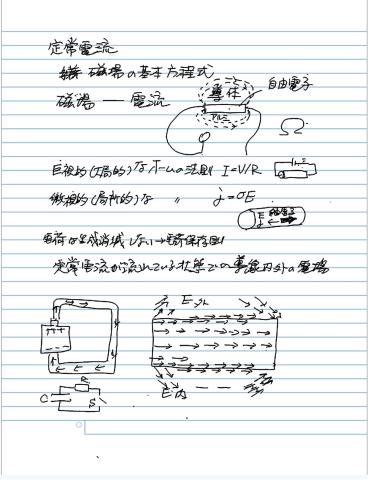 定常電流
磁場の基本方程式
導体
自由電子
磁場 ― 電流
Ω
巨視的(大局的)なオームの法則 I=V/R
微視的(局所的)な 〃 j=σE
電荷は生成消滅しない→電荷保存則
定常電流が流れている状態での導線内外の電場
E外
R
C
S
E内